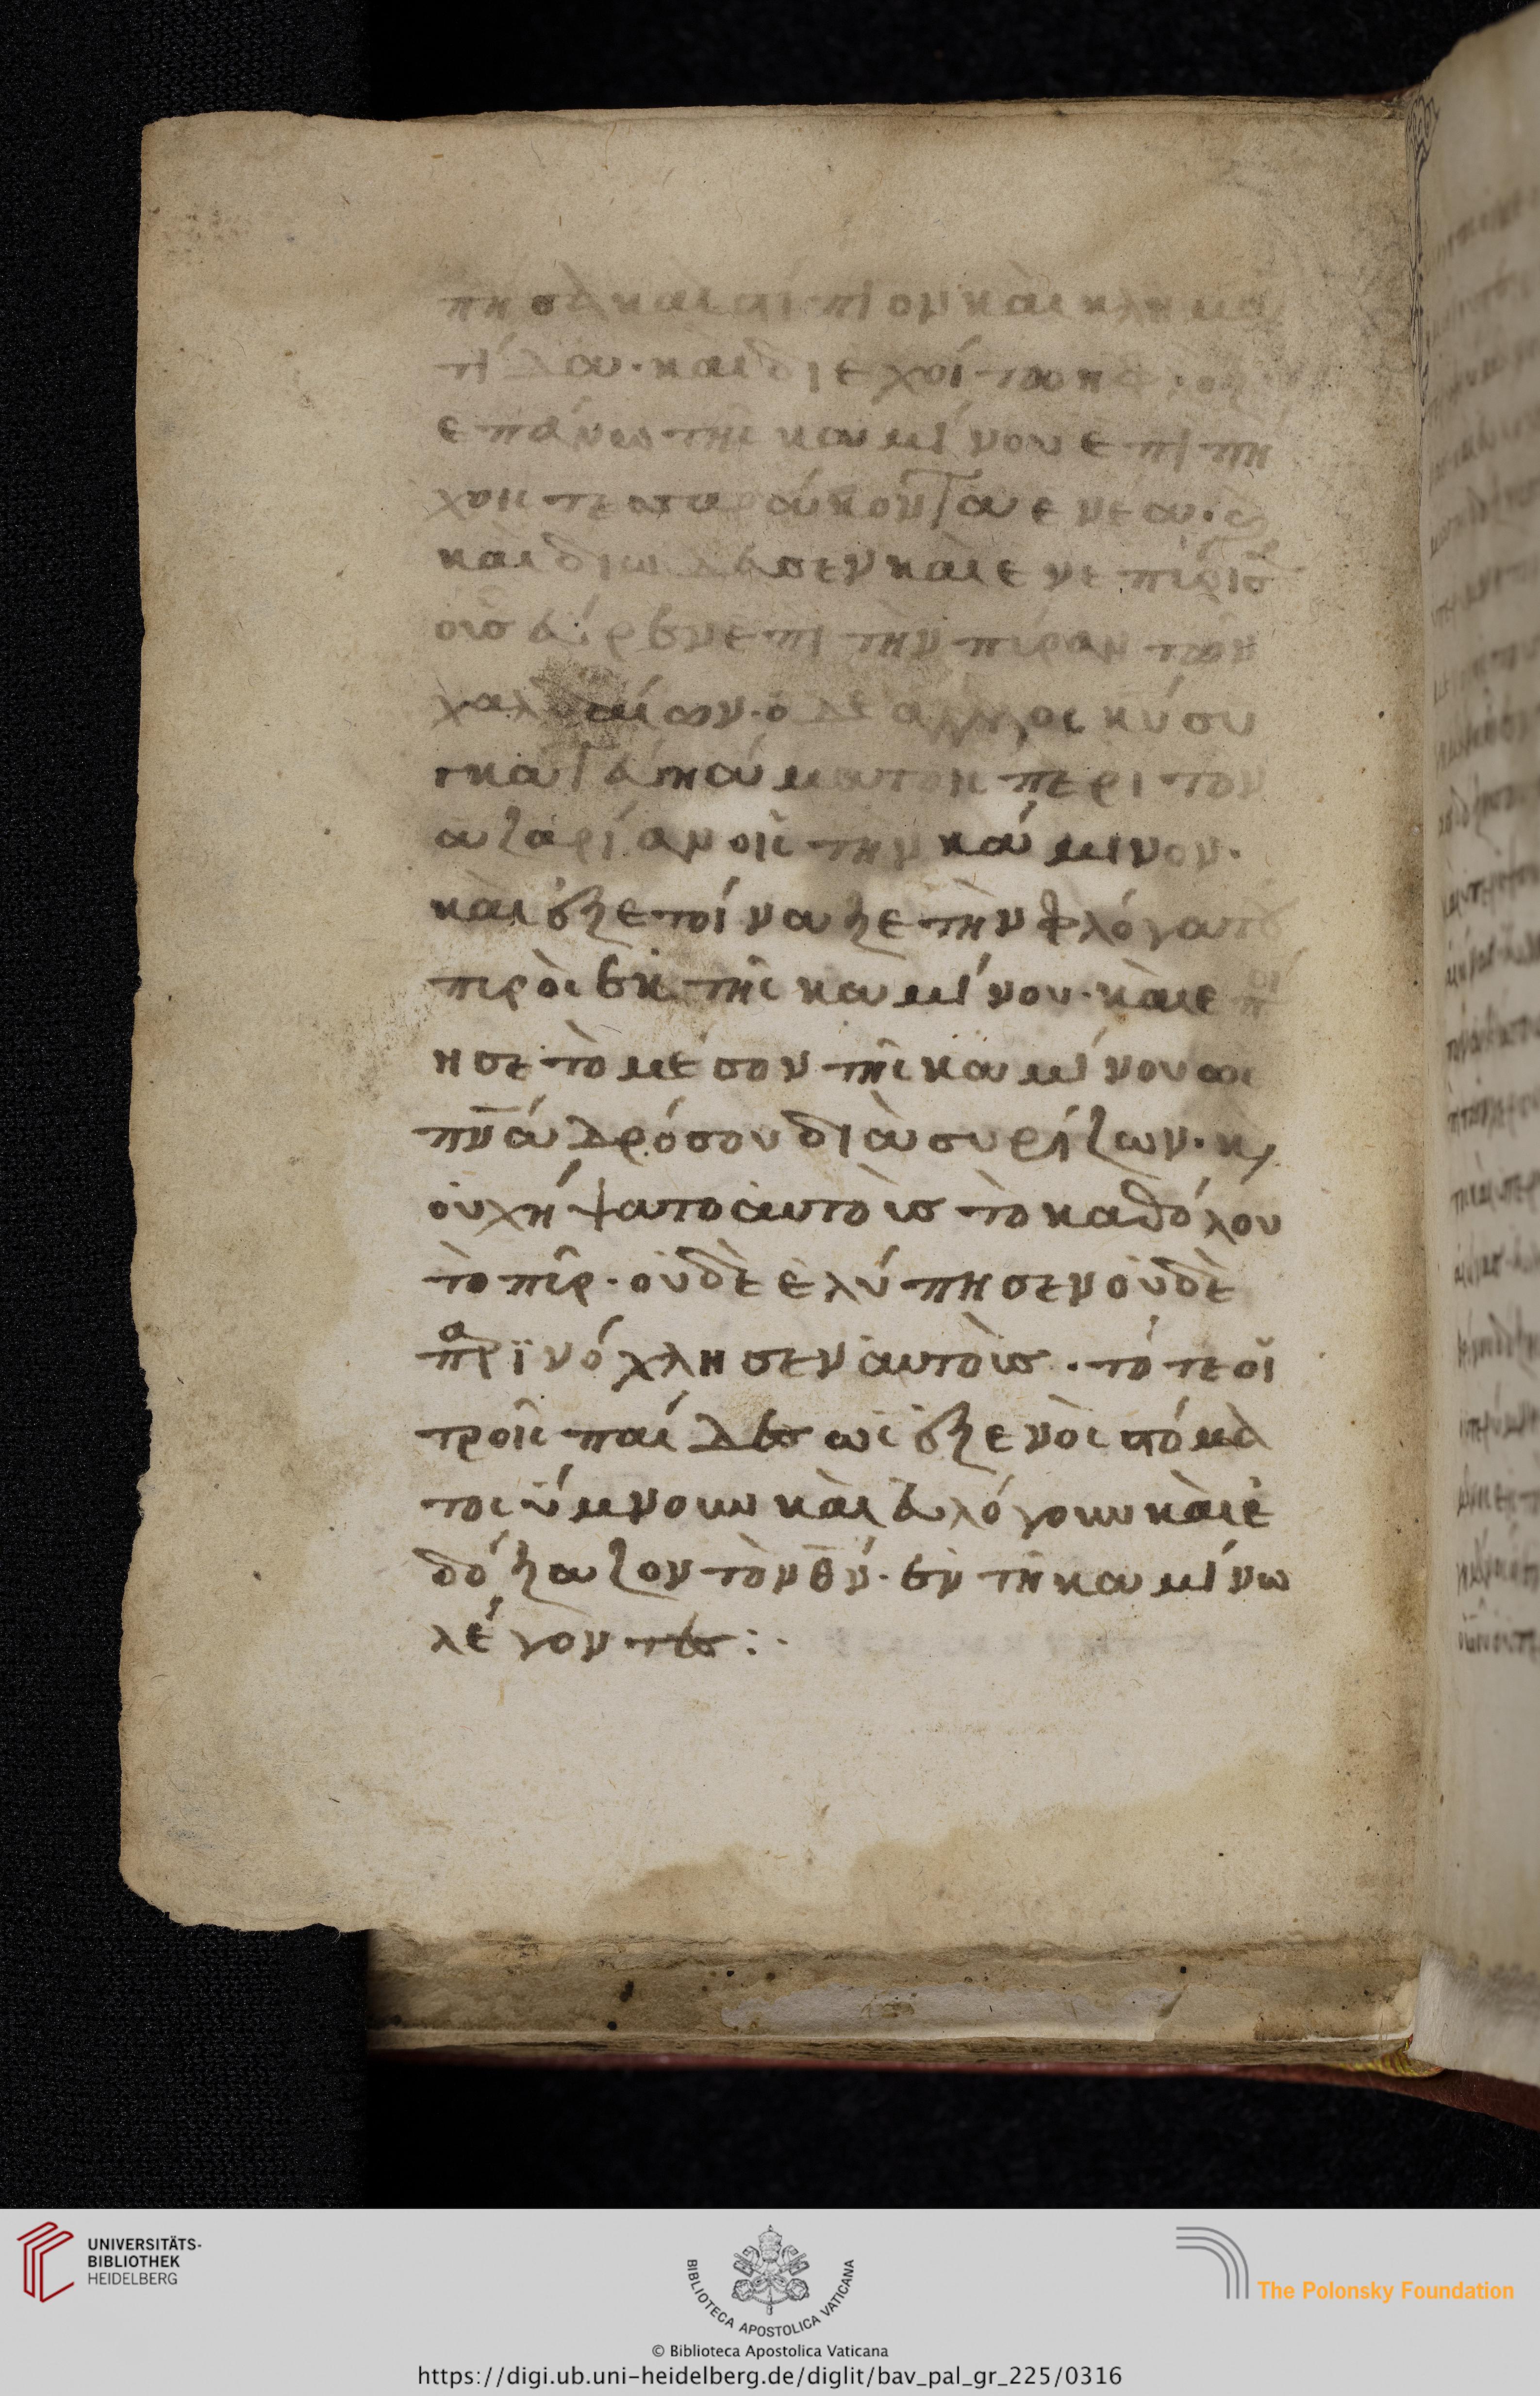 πησα καὶ στίπιον καὶ κλημα
τίδα· καὶ διεχοίτω η φλοξ
επάνω τῆς καμίνου επὶ πή
χοις τεσσαράκοντα εννέα·
καὶ διώδευσεν καὶ ενεπύρισεν
οὓς εὗρεν επὶ τὴν πύραν τῶν
χαλδαίων· ὁ δὲ ἄγγελος κύ συ
γκατέβη ἅμα τοῖς περι τον
αζαρίαν οἰς τὴν κάμινον·
καὶ ἐξετοίναξε τὴν φλόγα τοῦ
πυρὸς ἐκ τῆς καμίνου· καὶ εποί
ησε τὸ μέσον τῆς καμίνου ὡς
πνᾶ δρόσου διὰ συρίζων· κ
οὐχ ἥψατο αὐτοὺς τὸ καθόλου
τὸ πῦρ· οὐδὲ ἐλύπησεν οὐδὲ
παρινόχλησεν αὐτοὺς· τότε οἱ
τροῖς παίδες ὡς ἐξ ενὸς στόμα
τος ὕμνουν καὶ εὐλόγουν καὶ ἐ
δόξαζον τὸν θν· ἐν τῇ καμίνω
λέγοντες:·
UNIVERSITÄTS-
BIBLIOTHEK
HEIDELBERG
BIBLIOTECA APOSTOLICA VATICANA
The Polonsky Foundation
© Biblioteca Apostolica Vaticana
https://digi.ub.uni-heidelberg.de/diglit/bav_pal_gr_225/0316